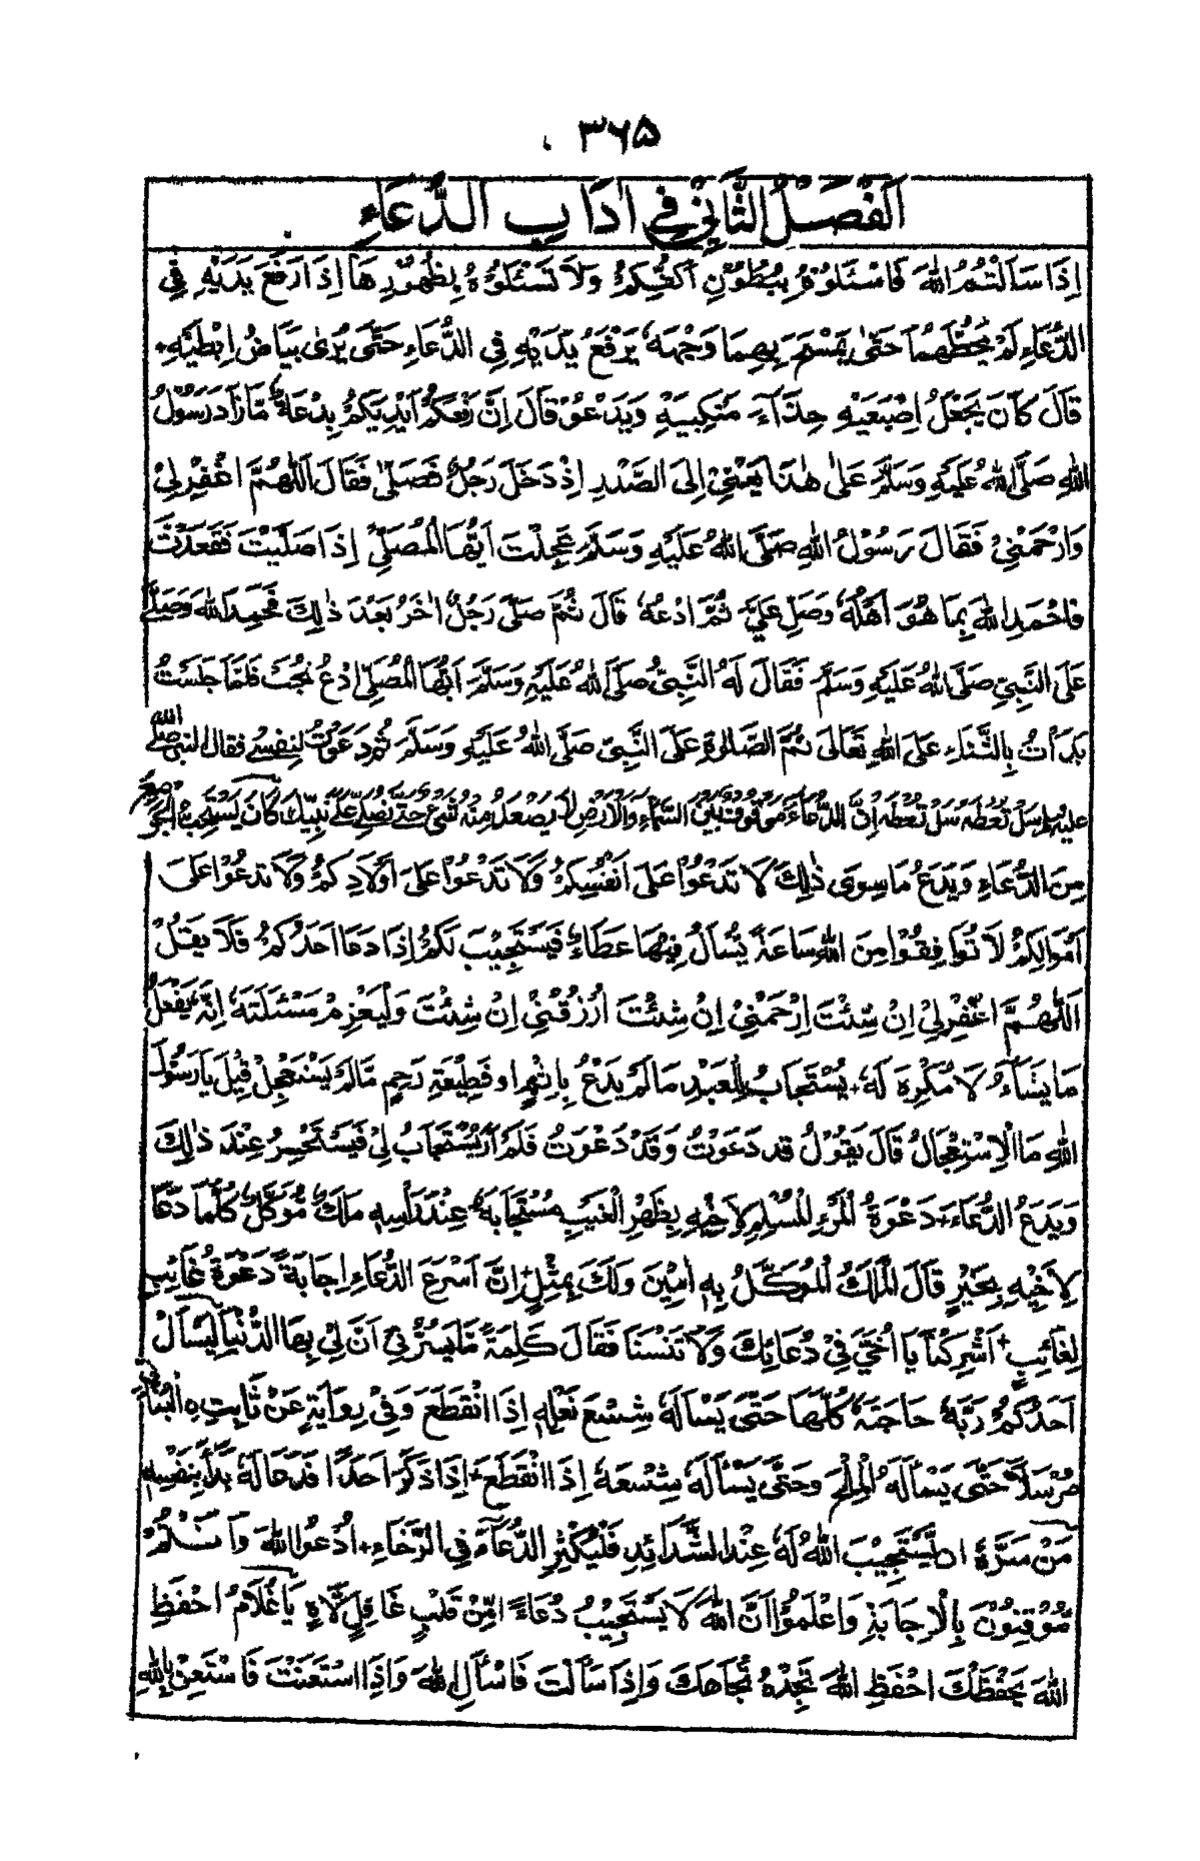 ۳۶۵
اَلْفَصْلُ الثَّانِيْ فِيْ اٰدَابِ الدُّعَاءِ
اِذَا سَاَلْتُمُ اللّٰهَ فَاسْئَلُوْهُ بِبُطُوْنِ اَكُفِّكُمْ وَلَا تَسْئَلُوْهُ بِظُهُوْرِهَا اِذَا رَفَعَ يَدَيْهِ فِي
الدُّعَاءِ لَمْ يَحُطَّهُمَا حَتّٰى يَمْسَحَ بِهِمَا وَجْهَهٗ يَرْفَعُ يَدَيْهِ فِي الدُّعَاءِ حَتّٰى يُرٰى بَيَاضُ اِبْطَيْهِ+
قَالَ كَانَ يَجْعَلُ اِصْبَعَيْهِ حِذَآءَ مَنْكِبَيْهِ وَيَدْعُوْ قَالَ اِنَّ رَفْعَكُمْ اَيْدِيَكُمْ بِدْعَةٌ مَّا زَادَ رَسُوْلُ
اللّٰهِ صَلَّى اللّٰهُ عَلَيْهِ وَسَلَّمَ عَلٰى هٰذَا يَعْنِيْ اِلَى الصَّدْرِ اِذْ دَخَلَ رَجُلٌ فَصَلّٰى فَقَالَ اَللّٰهُمَّ اغْفِرْ لِيْ
وَارْحَمْنِيْ فَقَالَ رَسُوْلُ اللّٰهِ صَلَّى اللّٰهُ عَلَيْهِ وَسَلَّمَ عَجِلْتَ اَيُّهَا الْمُصَلِّيْ اِذَا صَلَّيْتَ فَقَعَدْتَّ
فَاحْمَدِ اللّٰهَ بِمَا هُوَ اَهْلُهٗ وَصَلِّ عَلَيَّ ثُمَّ ادْعُهٗ قَالَ ثُمَّ صَلّٰى رَجُلٌ اٰخَرُ بَعْدَ ذٰلِكَ فَحَمِدَ اللّٰهَ وَصَلّٰى
عَلَى النَّبِيِّ صَلَّى اللّٰهُ عَلَيْهِ وَسَلَّمَ فَقَالَ لَهُ النَّبِيُّ صَلَّى اللّٰهُ عَلَيْهِ وَسَلَّمَ اَيُّهَا الْمُصَلِّي ادْعُ تُجَبْ فَلَمَّا جَلَسْتُ
بَدَأْتُ بِالثَّنَاءِ عَلَى اللّٰهِ تَعَالٰى ثُمَّ الصَّلٰوةِ عَلَى النَّبِيِّ صَلَّى اللّٰهُ عَلَيْهِ وَسَلَّمَ ثُمَّ دَعَوْتُ لِنَفْسِيْ فَقَالَ النَّبِيُّ صلى الله
عليه وسلم سَلْ تُعْطَهْ سَلْ تُعْطَهْ اِنَّ الدُّعَاءَ مَوْقُوْفٌ بَيْنَ السَّمَاءِ وَالْاَرْضِ لَا يَصْعَدُ مِنْهُ شَيْءٌ حَتّٰى تُصَلِّيَ عَلٰى نَبِيِّكَ كَانَ يَسْتَحِبُّ الْجَوَامِعَ
مِنَ الدُّعَاءِ وَيَدَعُ مَا سِوٰى ذٰلِكَ لَا تَدْعُوْا عَلٰى اَنْفُسِكُمْ وَلَا تَدْعُوْا عَلٰى اَوْلَادِكُمْ وَلَا تَدْعُوْا عَلٰى
اَمْوَالِكُمْ لَا تُوَافِقُوْا مِنَ اللّٰهِ سَاعَةً يُسْأَلُ فِيْهَا عَطَاءٌ فَيَسْتَجِيْبَ لَكُمْ اِذَا دَعَا اَحَدُكُمْ فَلَا يَقُلْ
اَللّٰهُمَّ اغْفِرْ لِيْ اِنْ شِئْتَ اِرْحَمْنِيْ اِنْ شِئْتَ اُرْزُقْنِيْ اِنْ شِئْتَ وَلْيَعْزِمْ مَسْئَلَتَهٗ اِنَّهٗ يَفْعَلُ
مَا يَشَآءُ لَا مُكْرِهَ لَهٗ+ يُسْتَجَابُ لِلْعَبْدِ مَا لَمْ يَدْعُ بِاِثْمٍ اَوْ قَطِيْعَةِ رَحِمٍ مَّا لَمْ يَسْتَعْجِلْ قِيْلَ يَا رَسُوْلَ
اللّٰهِ مَا الْاِسْتِعْجَالُ قَالَ يَقُوْلُ قَدْ دَعَوْتُ وَقَدْ دَعَوْتُ فَلَمْ اَرَ يُسْتَجَابُ لِيْ فَيَسْتَحْسِرُ عِنْدَ ذٰلِكَ
وَيَدَعُ الدُّعَاءَ+ دَعْوَةُ الْمَرْءِ الْمُسْلِمِ لِاَخِيْهِ بِظَهْرِ الْغَيْبِ مُسْتَجَابَةٌ عِنْدَ رَأْسِهٖ مَلَكٌ مُّوَكَّلٌ كُلَّمَا دَعَا
لِاَخِيْهِ بِخَيْرٍ قَالَ الْمَلَكُ الْمُوَكَّلُ بِهٖ اٰمِيْنَ وَلَكَ بِمِثْلٍ+ اِنَّ اَسْرَعَ الدُّعَاءِ اِجَابَةً دَعْوَةُ غَائِبٍ
لِغَائِبٍ+ اَشْرِكْنَا يَا اُخَيَّ فِيْ دُعَائِكَ وَلَا تَنْسَنَا فَقَالَ كَلِمَةً مَّا يَسُرُّنِيْ اَنَّ لِيْ بِهَا الدُّنْيَا لِيَسْأَلْ
اَحَدُكُمْ رَبَّهٗ حَاجَتَهٗ كُلَّهَا حَتّٰى يَسْاَلَهٗ شِسْعَ نَعْلِهٖ اِذَا انْقَطَعَ وَفِيْ رِوَايَةٍ عَنْ ثَابِتِ ۨ الْبُنَانِيِّ
مُرْسَلًا حَتّٰى يَسْأَلَهُ الْمِلْحَ وَحَتّٰى يَسْأَلَهٗ شِسْعَهٗ اِذَا انْقَطَعَ+ اِذَا ذَكَرَ اَحَدًا فَدَعَا لَهٗ بَدَأَ بِنَفْسِهٖ
مَنْ سَرَّهٗ اَنْ يَّسْتَجِيْبَ اللّٰهُ لَهٗ عِنْدَ الشَّدَائِدِ فَلْيُكْثِرِ الدُّعَآءَ فِي الرَّخَاءِ+ اُدْعُوا اللّٰهَ وَاَنْتُمْ
مُّوْقِنُوْنَ بِالْاِجَابَةِ وَاعْلَمُوْا اَنَّ اللّٰهَ لَا يَسْتَجِيْبُ دُعَاءً مِّنْ قَلْبٍ غَافِلٍ لَّاهٍ يَا غُلَامُ احْفَظِ
اللّٰهَ يَحْفَظْكَ احْفَظِ اللّٰهَ تَجِدْهُ تُجَاهَكَ وَاِذَا سَاَلْتَ فَاسْأَلِ اللّٰهَ وَاِذَا اسْتَعَنْتَ فَاسْتَعِنْ بِاللّٰهِ